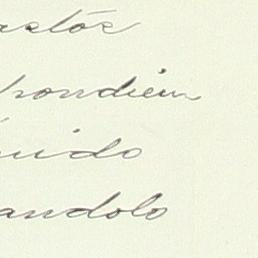 astós
pondien
uido
andolo